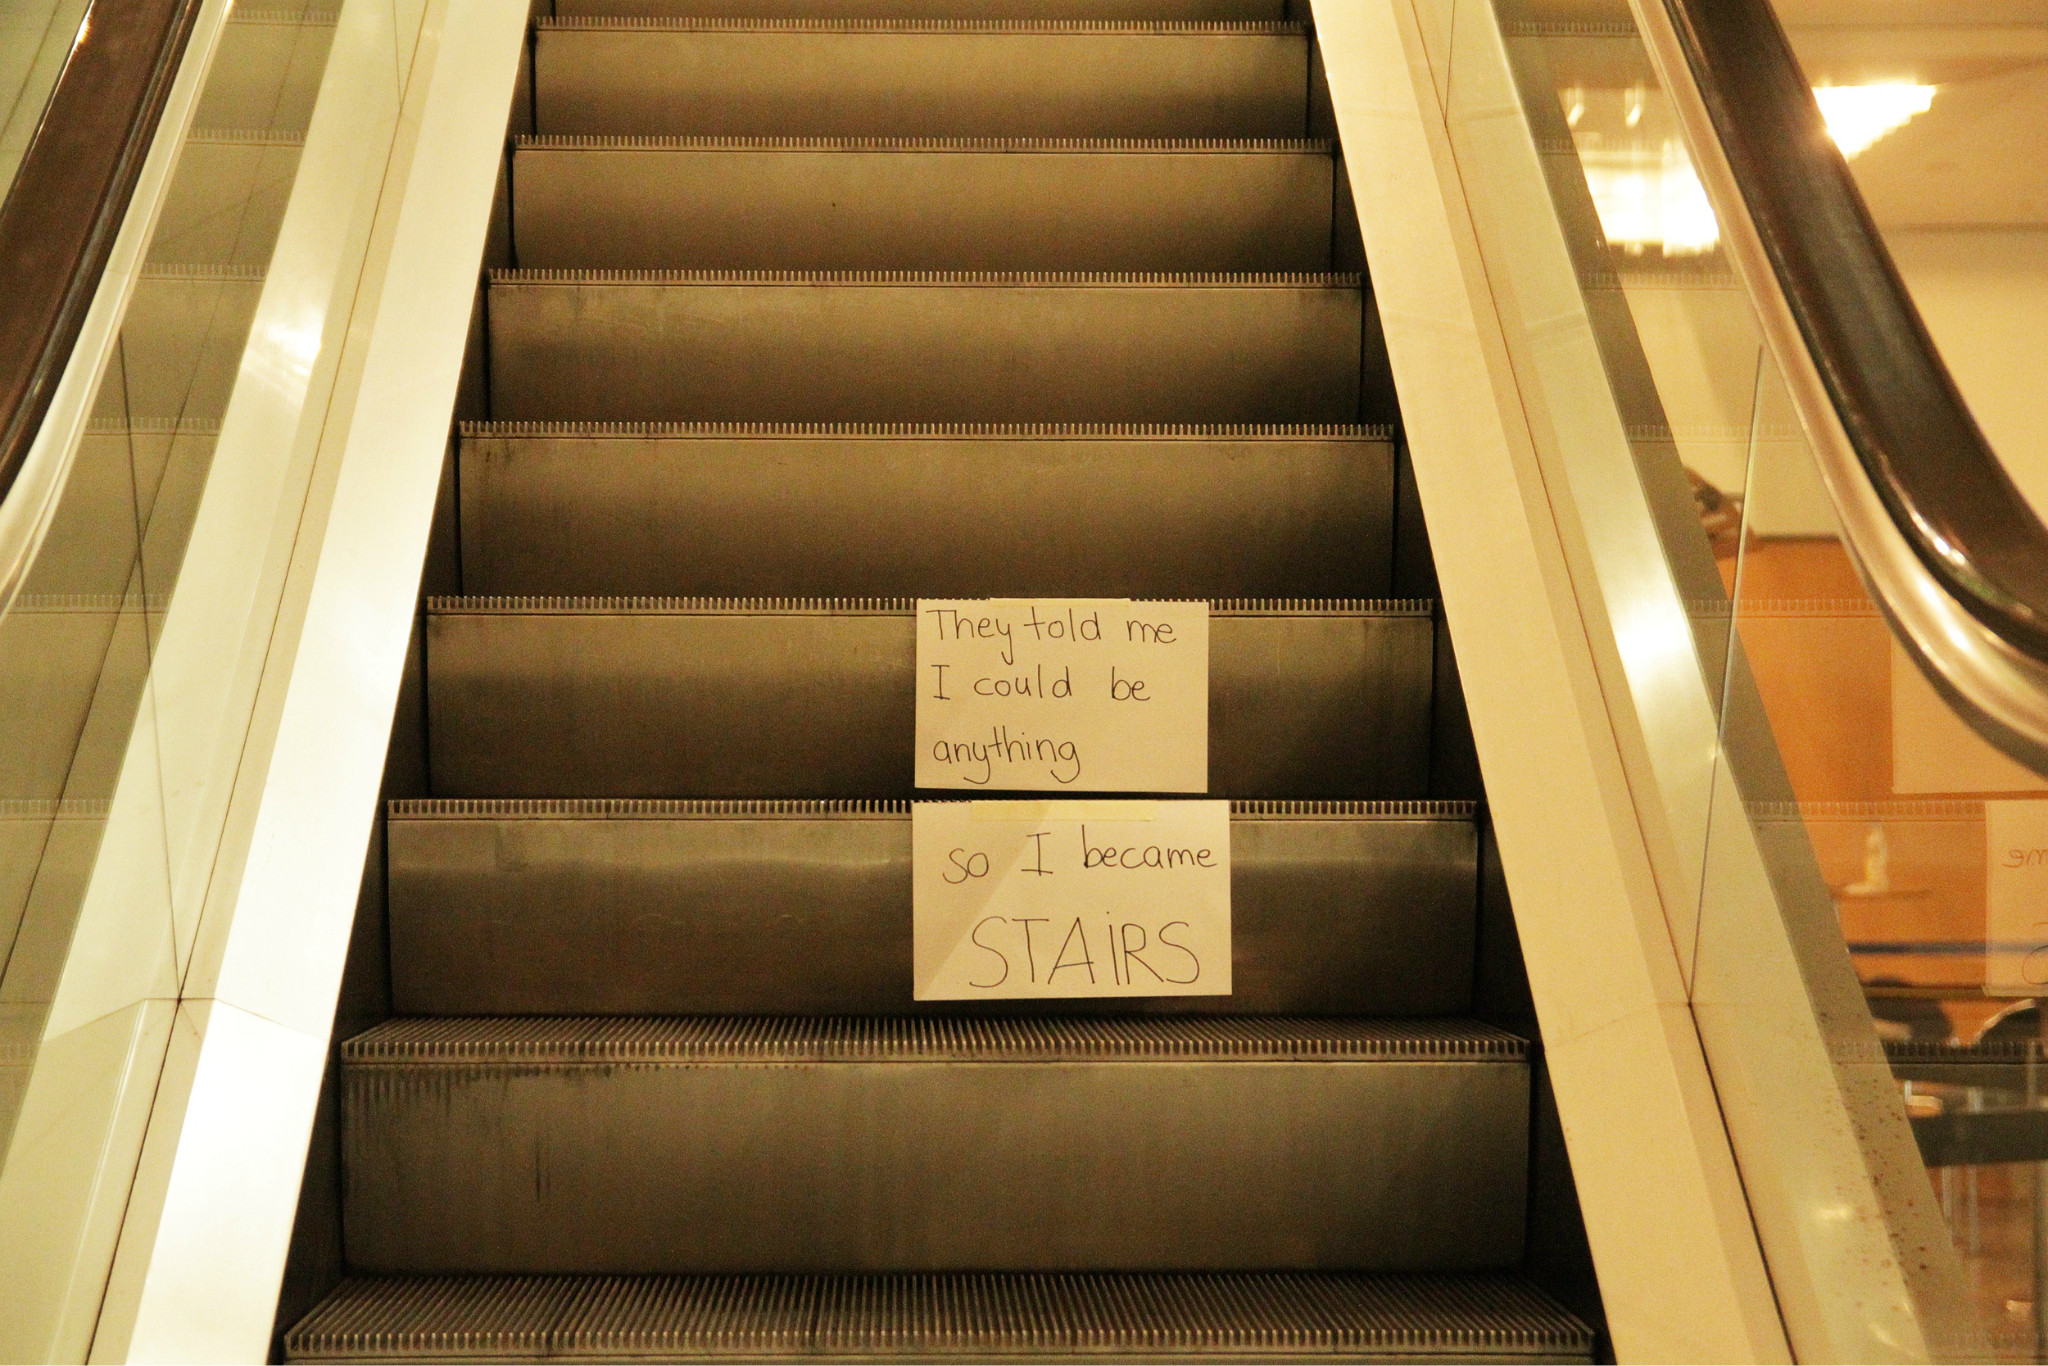 They told me
I could be
anything
so I became
STAiRS
me